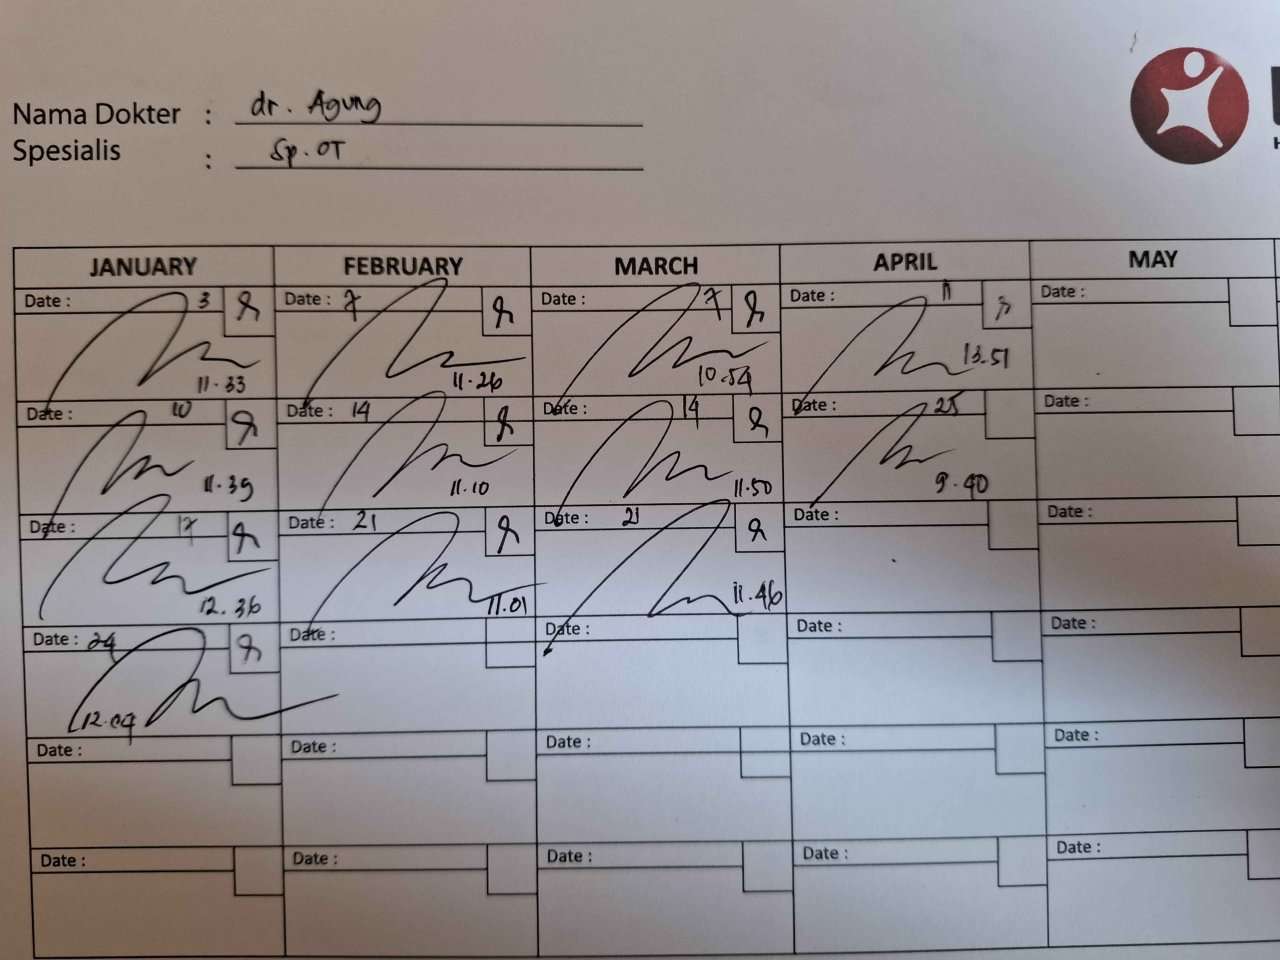 Nama Dokter : dr. Agung
Spesialis : Sp.OT
JANUARY FEBRUARY MARCH APRIL MAY
Date : 3 Date : 7 Date : 7 Date : 11 Date :
11.33 11.26 10.54 13.51
Date : 10 Date : 14 Date : 14 Date : 25 Date :
11.39 11.10 11.50 9.40
Date : 17 Date : 21 Date : 21 Date : Date :
12.36 11.01 11.46
Date : 24 Date : Date : Date : Date :
12.04
Date : Date : Date : Date : Date :
Date : Date : Date : Date : Date :